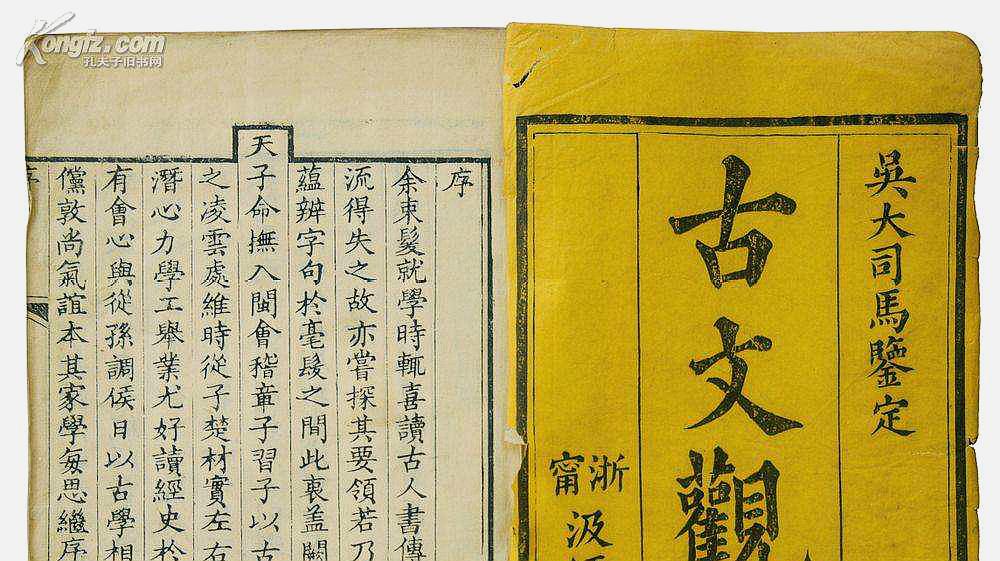 吳大司馬鑒定
古文觀
浙甯汲
序
余束髮就學時輒喜讀古人書傳
流得失之故亦嘗探其要領若乃
蘊辨字句於毫髮之間此衷盖闕
天子命撫入閩會稽章子習子以古
之凌雲處維時從子楚材實左右
潛心力學工舉業尤好讀經史於
有會心與從孫調侯日以古學相
儻敦尚氣誼本其家學每思繼序
序
Kongfz.com
孔夫子旧书网